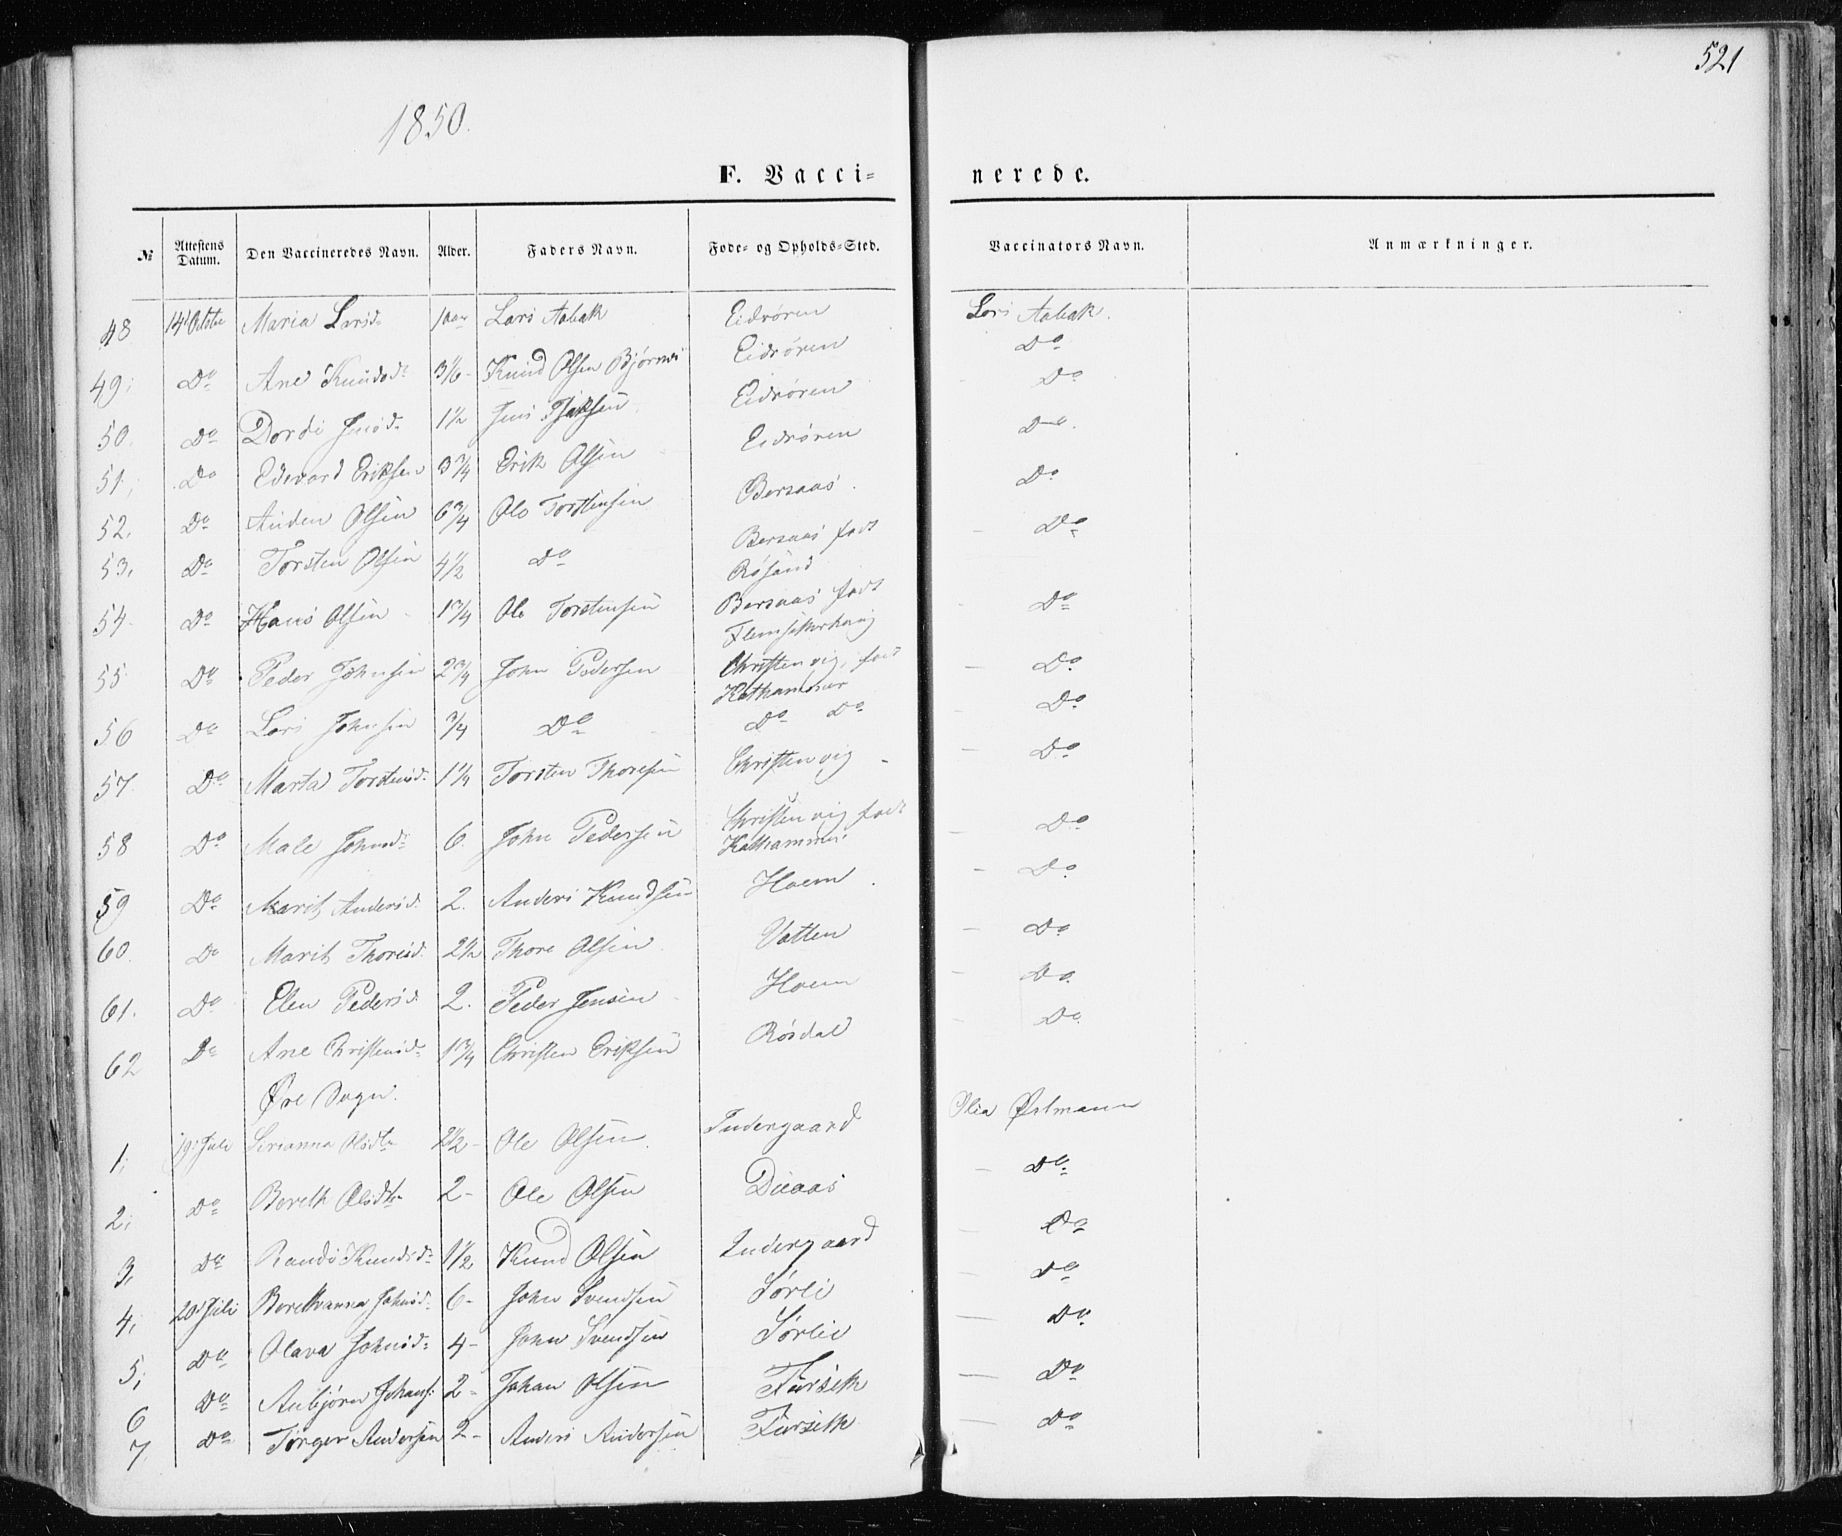 521
1850.
F. Vacci= nerede.
№ Attestens Datum. Den Vaccineredes Navn. Alder. Faders Navn. Føde= og Opholds=Sted. Vaccinators Navn. Anmærkninger.
48 14 Octbr Maria Larsd. 1 aar Lars Aabak Eidsøren Lars Aabak.
49; Do Ane Knudsd. 3 1/6 - Knud Olsen Bjørnes Eidsøren Do
50. Do Dordi Jensd. 1 1/2 Jens Eidsøren Do
51; Do Edevard Eriksen 3 3/4 Erik Olsen Eidsøren Do.
52. Do Anden Olsen 6 3/4 Ole Torstensen Bersaas. Do
53. Do Torsten Olsen 4 1/2 Do Bersaas født Do
Røsand
54. Do Hans Olsen 1 3/4 Ole Torstensen Bersaas født Do
55 Do Peder Johnsen 2 3/4 John Pedersen Christenvig, født Do
Kathammer
56 Do Lars Johnsen 3/4 Do Do Do Do
57. Do Marta Torstensd. 1 1/4 Torsten Thoresen Christenvig Do
58 Do Male Johnsd. 6. John Pedersen Christenvig født Do
Kathammer
59 Do Marit Andersd. 2. Anders Knudsen Hoem. Do
60. Do Marit Thoresd. 2 1/2 Thore Olsen Vatten Do
61. Do Elen Pedersd. 2. Peder Jensen Hoem Do.
62 Do Ane Christensd. 1 3/4 Christen Eriksen Rosdal Do
Øre Sogn.
1; 19 Juli Serianna Olsdtr 2 1/2 - Ole Olsen Indergaard Olia Østmann
2; Do Bereth Olsdtr 2 - Ole Olsen Duaas Do
3, Do Randi Knudsd. 1 1/2, Knud Olsen Indergaard Do
4; 20 Juli Berethanna Johnsd. 6 - John Svendsen Sørli Do
5; Do Olava Johnsd. 4 - John Svendsen Sørlie Do
6 Do Anbjørn Johans: 2 - Johan Olsen Furseth Do
7, Do Torger Andersen 2 - Anders Andersen Furseth Do